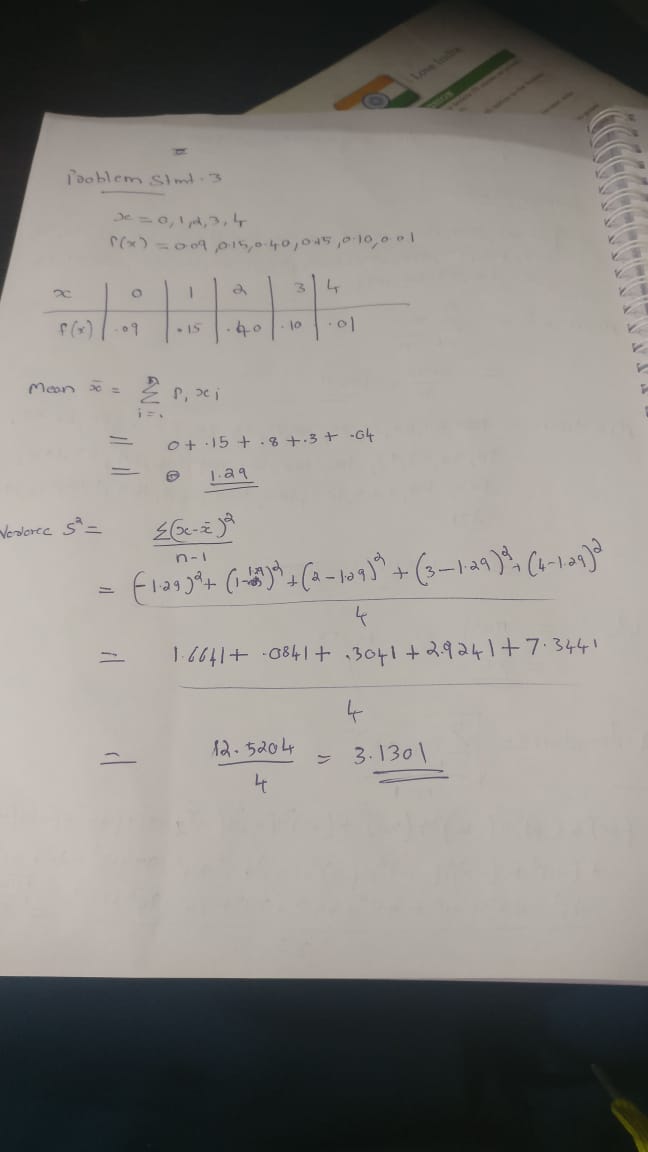 Love India
Problem Stmt. 3
x = 0, 1, 2, 3, 4
P(x) = 0.09, 0.15, 0.40, 0.25, 0.10, 0.01
x | 0 | 1 | 2 | 3 | 4
P(x) | .09 | .15 | .40 | .10 | .01
Mean x̄ = Σ Pi xi
i=1
= 0 + .15 + .8 + .3 + .04
= 1.29
S² = Σ(x-x̄)²
n-1
= (-1.29)² + (1-1.29)² + (2-1.29)² + (3-1.29)² + (4-1.29)²
4
= 1.6641 + .0841 + .3041 + 2.9241 + 7.3441
4
= 12.5204
4
= 3.1301